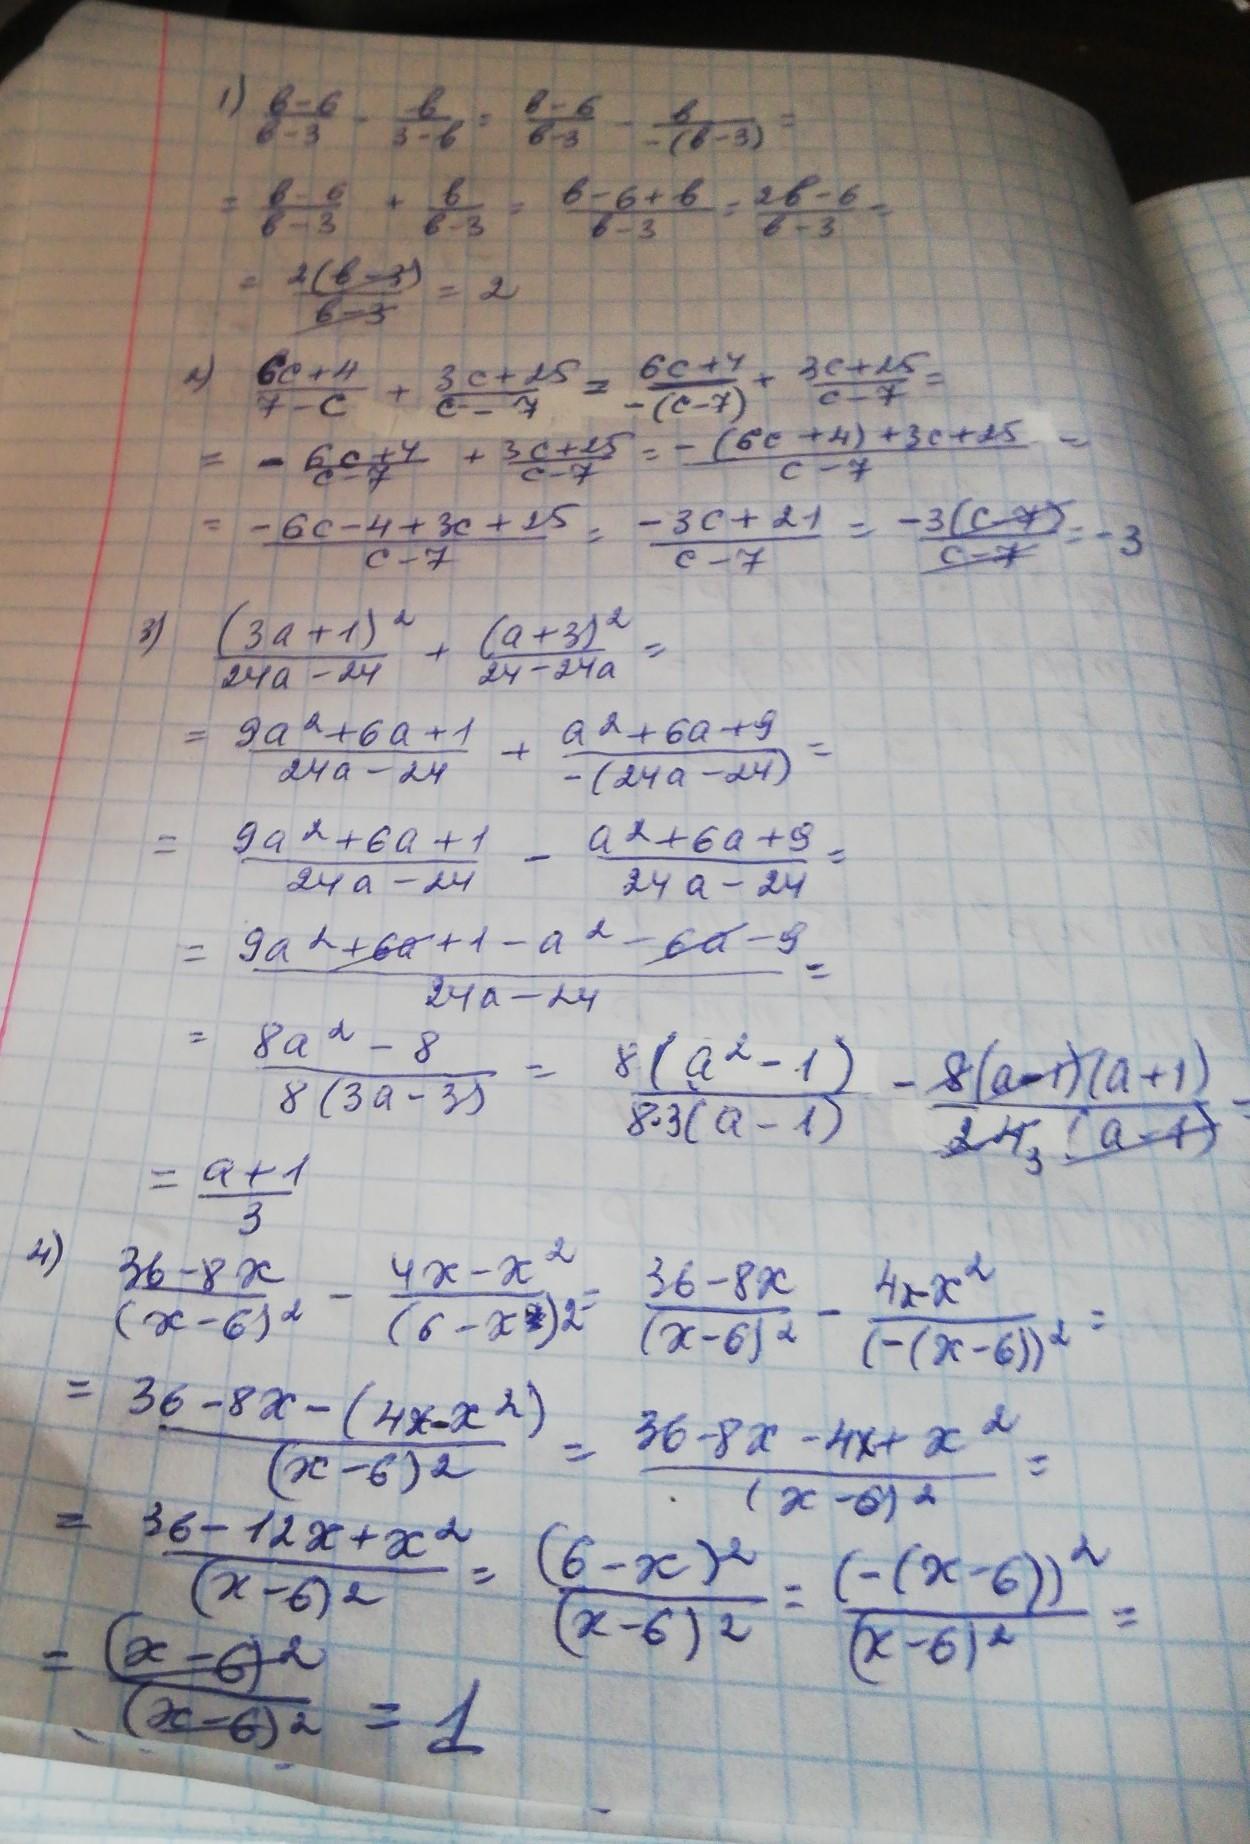 1) (в-6)/(в-3) - в/(3-в) = (в-6)/(в-3) - в/(-(в-3)) =
= (в-6)/(в-3) + в/(в-3) = (в-6+в)/(в-3) = (2в-6)/(в-3) =
= 2(в-3)/(в-3) = 2
2) (6c+4)/(7-c) + (3c+25)/(c-7) = (6c+4)/(-(c-7)) + (3c+25)/(c-7) =
= - (6c+4)/(c-7) + (3c+25)/(c-7) = (-(6c+4)+3c+25)/(c-7) =
= (-6c-4+3c+25)/(c-7) = (-3c+21)/(c-7) = -3(c-7)/(c-7) = -3
3) (3a+1)²/(24a-24) + (a+3)²/(24-24a) =
= (9a²+6a+1)/(24a-24) + (a²+6a+9)/(-(24a-24)) =
= (9a²+6a+1)/(24a-24) - (a²+6a+9)/(24a-24) =
= (9a²+6a+1-a²-6a-9)/(24a-24) =
= (8a²-8)/(8(3a-3)) = 8(a²-1)/(8·3(a-1)) - 8(a-1)(a+1)/(24 3 (a-1)) =
= (a+1)/3
4) (36-8x)/(x-6)² - (4x-x²)/(6-x)² = (36-8x)/(x-6)² - (4x-x²)/(-(x-6))² =
= (36-8x-(4x-x²))/(x-6)² = (36-8x-4x+x²)/(x-6)² =
= (36-12x+x²)/(x-6)² = (6-x)²/(x-6)² = (-(x-6))²/(x-6)² =
= (x-6)²/(x-6)² = 1